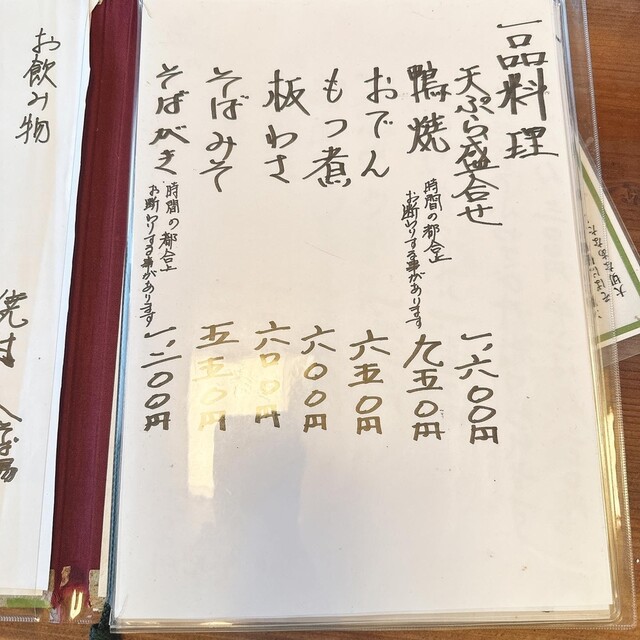 一品料理
天ぷら盛合せ 一、六〇〇円
鴨焼 時間の都合上お断わりする事があります 九五〇円
おでん 六五〇円
もつ煮 六〇〇円
板わさ 六〇〇円
そばみそ 五五〇円
そばがき 時間の都合上お断わりする事があります 一、二〇〇円
お飲み物
焼酎
大切なあなた